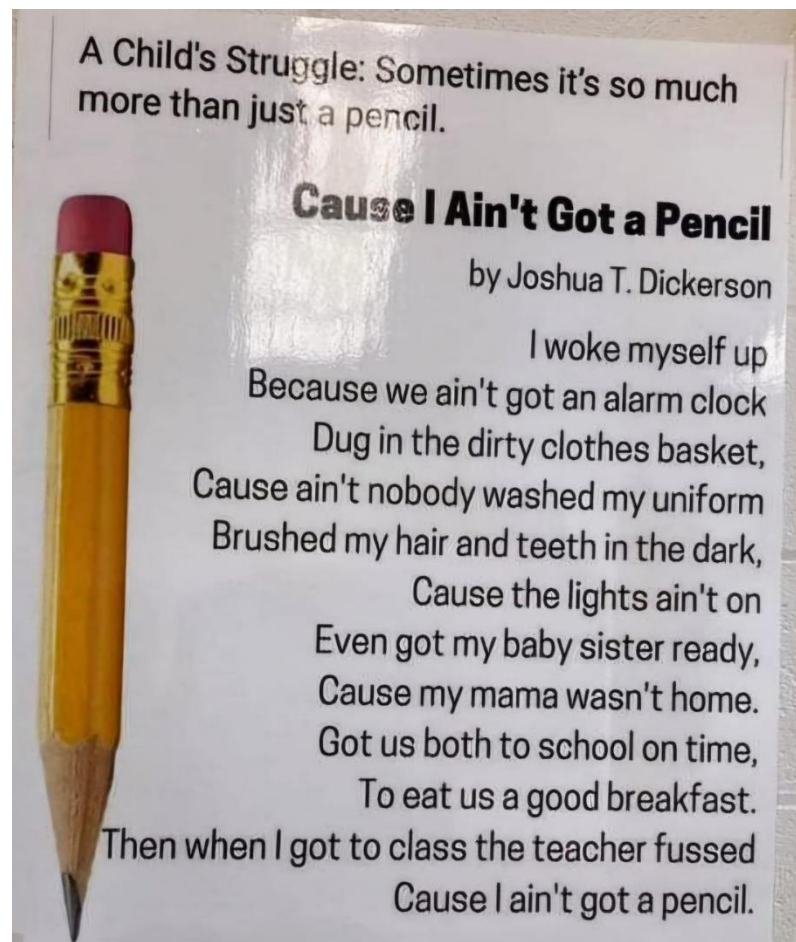 A Child's Struggle: Sometimes it's so much
more than just a pencil.
Cause I Ain't Got a Pencil
by Joshua T. Dickerson
I woke myself up
Because we ain't got an alarm clock
Dug in the dirty clothes basket,
Cause ain't nobody washed my uniform
Brushed my hair and teeth in the dark,
Cause the lights ain't on
Even got my baby sister ready,
Cause my mama wasn't home.
Got us both to school on time,
To eat us a good breakfast.
Then when I got to class the teacher fussed
Cause I ain't got a pencil.